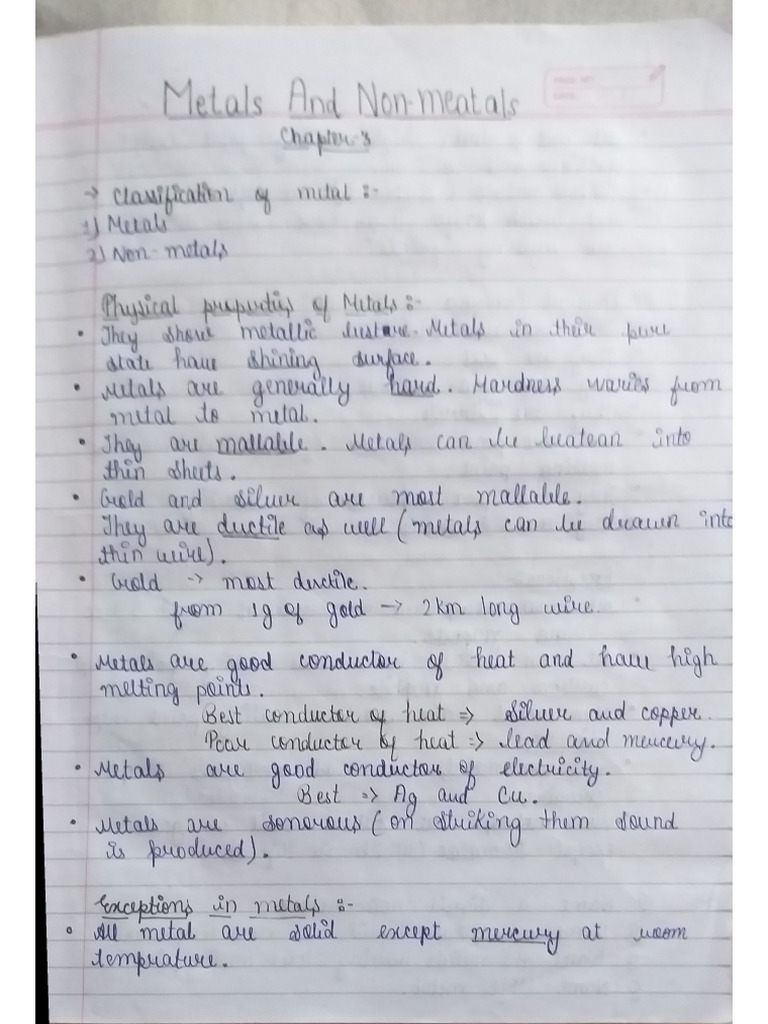 Metals And Non-meatals
Chapter-3
→ Classification of metal :-
1) Metals
2) Non-metals
Physical properties of Metals :-
• They show metallic lusture. Metals in their pure
state have shining surface.
• Metals are generally hard. Hardness waries from
metal to metal.
• They are mallable. Metals can be beatean into
thin sheets.
• Gold and silver are most mallable.
They are ductile as well (metals can be drawn into
thin wire).
• Gold → most ductile.
from 1g of gold → 2km long wire.
• Metals are good conductor of heat and have high
melting points.
Best conductor of heat ⇒ silver and copper.
Poar conductor of heat ⇒ lead and mercury.
• Metals are good conductor of electricity.
Best ⇒ Ag and Cu.
• Metals are sonorous (on striking them sound
is produced).
Exceptions in metals :-
• All metal are solid except mercury at room
temprature.